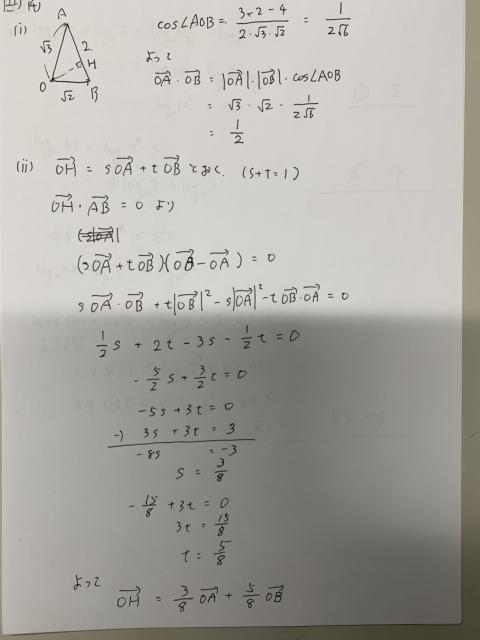 (4)
(i)
A
√3
2
H
O
√2
B
cos∠AOB = (3+2-4)/(2·√3·√2) = 1/(2√6)
よって
→OA · →OB = |→OA|·|→OB|·cos∠AOB
= √3 · √2 · 1/(2√6)
= 1/2
(ii) →OH = s→OA + t→OB とおく. (s+t=1)
→OH · →AB = 0 より
(s→OA + t→OB)(→OB - →OA) = 0
s→OA · →OB + t|→OB|² - s|→OA|² - t→OB·→OA = 0
1/2 s + 2t - 3s - 1/2 t = 0
- 5/2 s + 3/2 t = 0
-5s + 3t = 0
-) 3s + 3t = 3
-8s = -3
s = 3/8
- 15/8 + 3t = 0
3t = 15/8
t = 5/8
よって
→OH = 3/8 →OA + 5/8 →OB